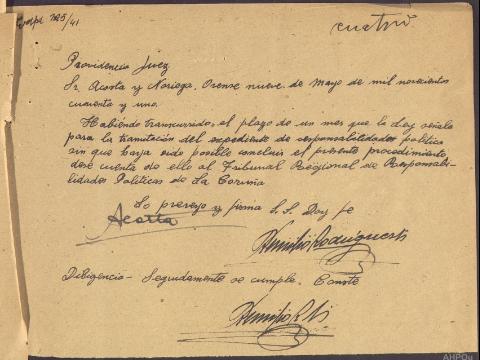 Expd. 725/41
cuatro
Providencia Juez
Sr. Acosta y Noriega. Orense nueve de Mayo de mil novecientos
cuarenta y uno.
Habiendo transcurrido el plazo de un mes que la Ley señala
para la tramitación del expediente de responsabilidades politica
sin que haya sido posible concluir el presente procedimiento,
dese cuenta de ello al Tribunal Regional de Responsabi-
lidades Politicas de La Coruña
Lo proveyo y firma S.S. Doy fe
Acosta
Diligencia - Seguidamente se cumple. Conste
AHPOu